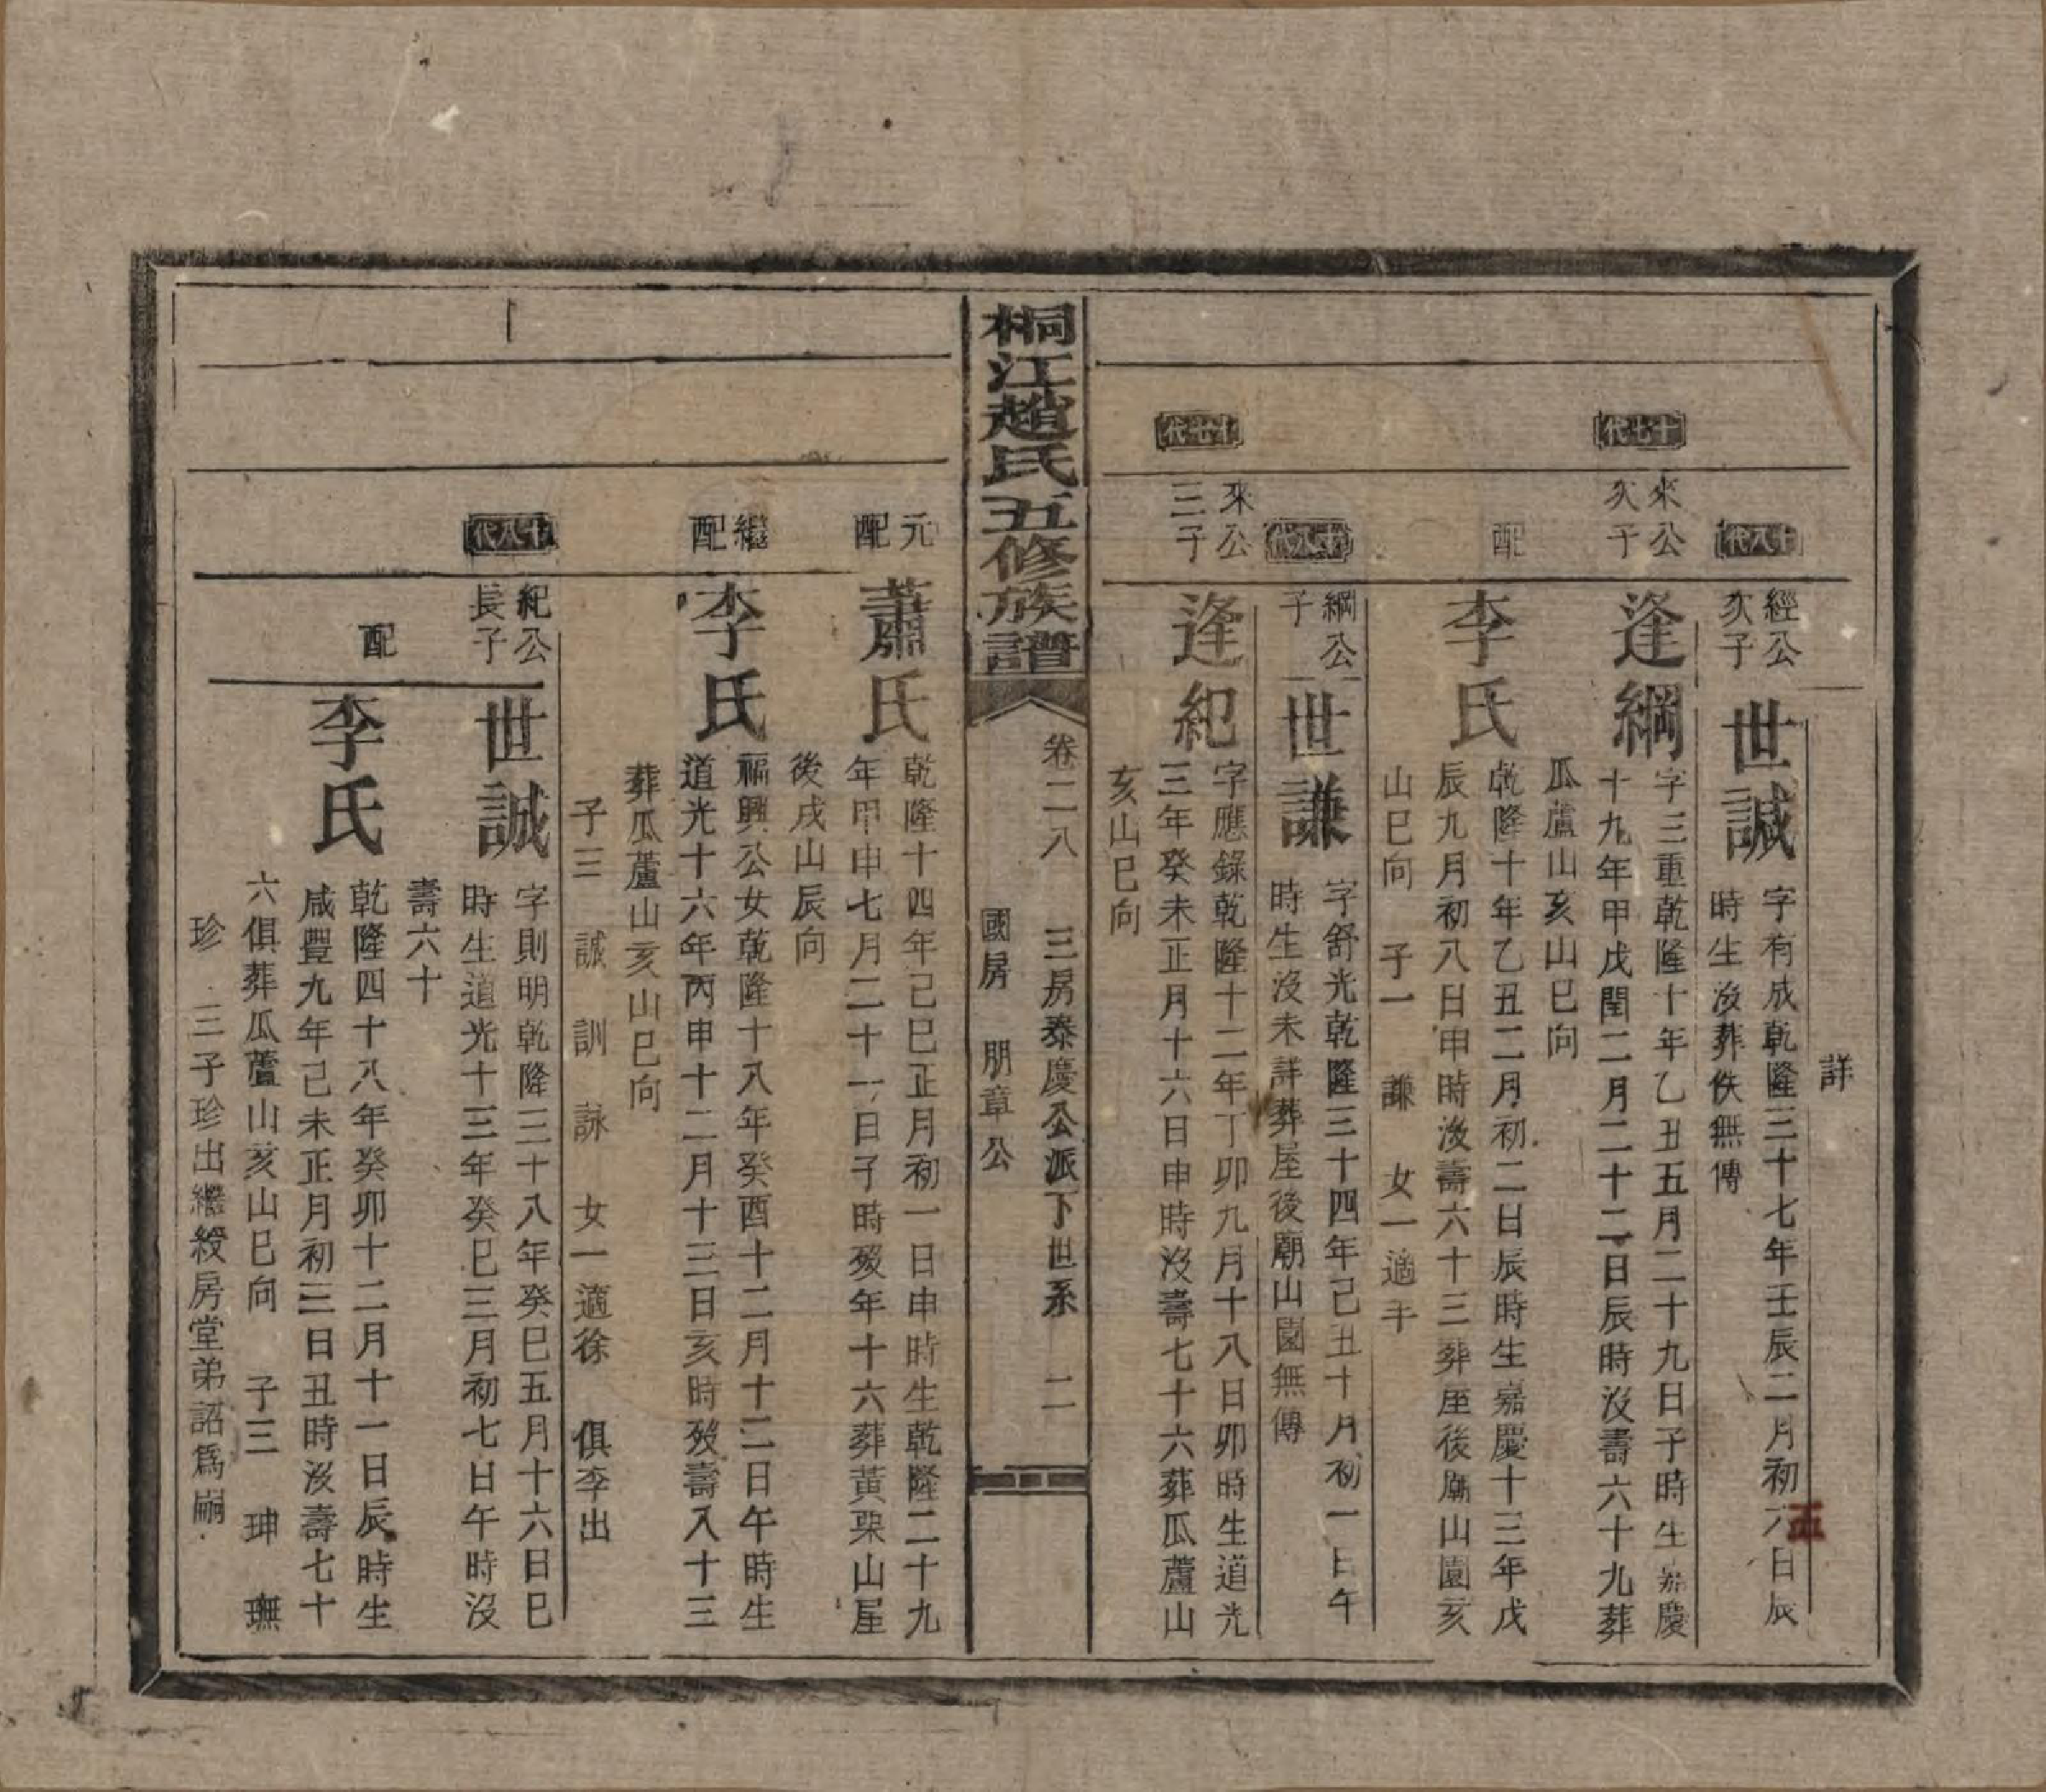 詳
十八代
經公
次子
世諴
字有成乾隆三十七年壬辰二月初六日辰
時生歿葬佚無傳
十七代
來公
次子
逢綱
字三重乾隆十年乙丑五月二十九日子時生嘉慶
十九年甲戌閏二月二十二日辰時沒壽六十九葬
瓜蘆山亥山巳向
配
李氏
乾隆十年乙丑二月初二日辰時生嘉慶十三年戊
辰九月初八日申時沒壽六十三葬屋後廟山園亥
山巳向 子一 謙 女一適
十八代
綱公
子
世謙
字舒光乾隆三十四年己丑十月初一日午
時生沒未詳葬屋後廟山園無傳
十七代
來公
三子
逢紀
字應錄乾隆十二年丁卯九月十八日卯時生道光
三年癸未正月十六日申時沒壽七十六葬瓜蘆山
亥山巳向
桐江趙氏五修族譜
卷二八 三房泰慶公派下世系 二
國房 朋章公
元
配
蕭氏
乾隆十四年己巳正月初一日申時生乾隆二十九
年甲申七月二十一日子時歿年十六葬黃梨山屋
後戌山辰向
繼
配
李氏
福興公女乾隆十八年癸酉十二月十二日午時生
道光十六年丙申十二月十三日亥時歿壽八十三
葬瓜蘆山亥山巳向
子三 誠 訓 詠 女一適徐 俱李出
十八代
紀公
長子
世誠
字則明乾隆三十八年癸巳五月十六日巳
時生道光十三年癸巳三月初七日午時沒
壽六十
配
李氏
乾隆四十八年癸卯十二月十一日辰時生
咸豐九年己未正月初三日丑時沒壽七十
六俱葬瓜蘆山亥山巳向 子三 珅 璑
珍 三子珍出繼綬房堂弟詔爲嗣